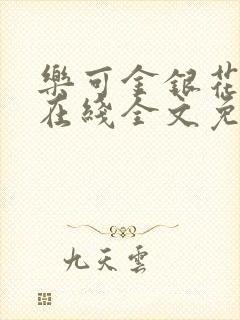 樂可金銀花
在綫全文免
九天雲